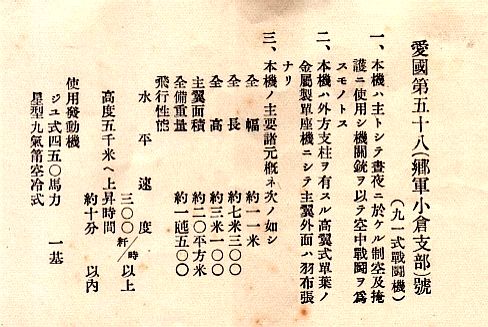 愛國第五十八(郷軍小倉支部)號
(九一式戰鬪機)
一、本機ハ主トシテ晝夜ニ於ケル制空及掩
護ニ使用シ機關銃ヲ以テ空中戰鬪ヲ爲
スモノトス
二、本機ハ外方支柱ヲ有スル高翼式單葉ノ
金屬製單座機ニシテ主翼外面ハ羽布張
ナリ
三、本機ノ主要諸元概ネ次ノ如シ
全幅 約一一米
全長 約七米三〇〇
全高 約三米一〇〇
主翼面積 約二〇平方米
全備重量 約一瓲五〇〇
飛行性能
水平速度 三〇〇粁/時以上
高度五千米ヘ上昇時間
約十分以内
使用發動機
ジユ式四五〇馬力 一基
星型九氣筩空冷式